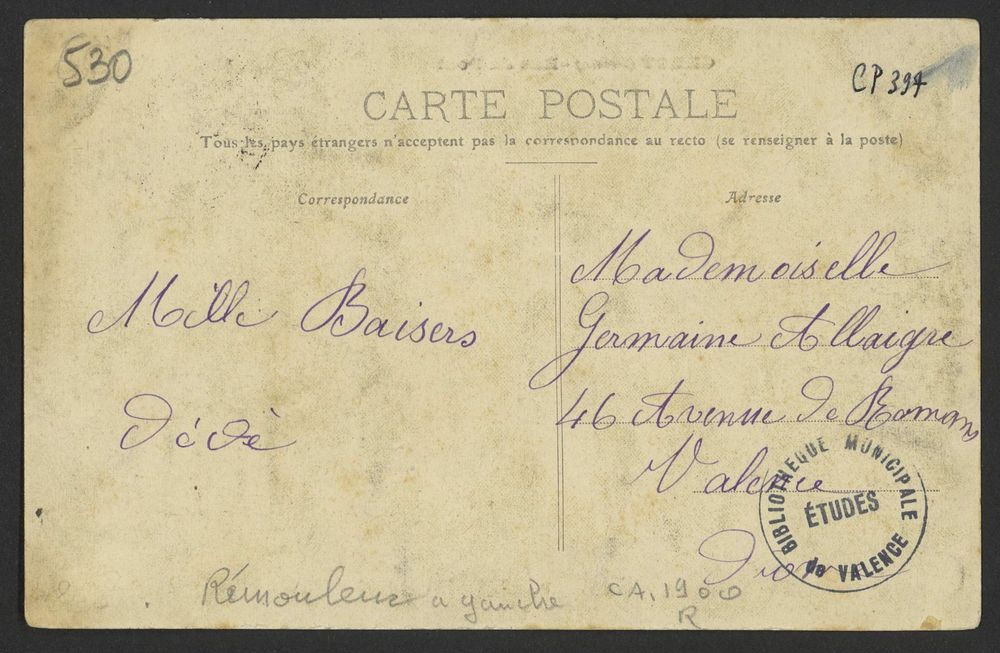 530
CP 394
CARTE POSTALE
Tous les pays étrangers n'acceptent pas la correspondance au recto (se renseigner à la poste)
Correspondance
Mille Baisers
Dédé
Adresse
Mademoiselle
Germaine Allaigre
46 Avenue de Romans
Valence
Drome
BIBLIOTHEQUE MUNICIPALE
ÉTUDES
de VALENCE
Rémouleur a gauche
CA. 1900
R